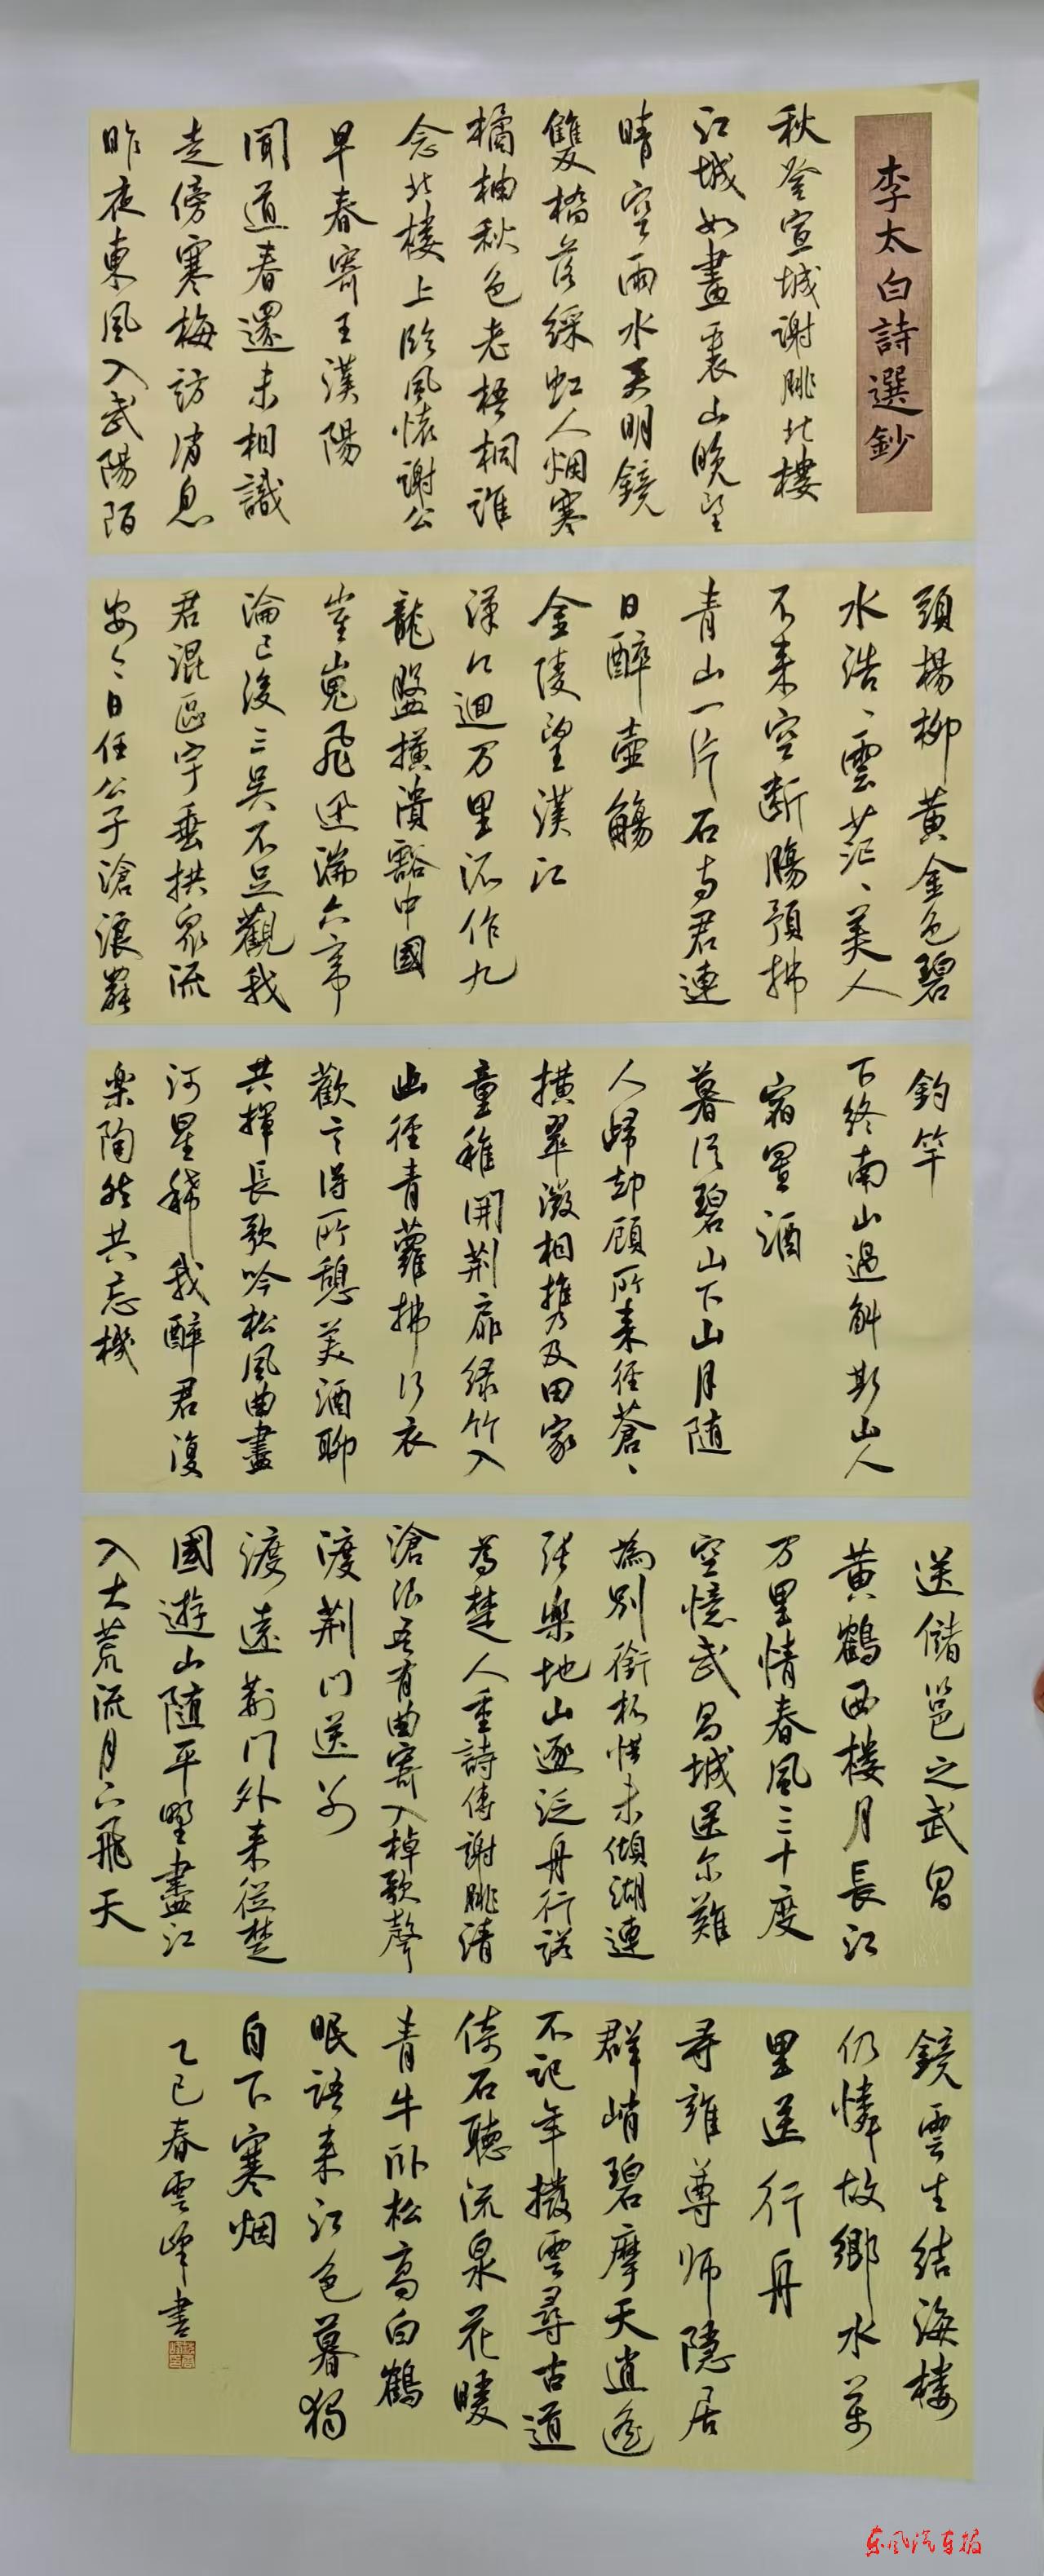 李太白詩選鈔
秋登宣城謝朓北樓
江城如畫裏山晚望
晴空兩水夾明鏡
雙橋落綵虹人烟寒
橘柚秋色老梧桐誰
念北楼上臨風懐謝公
早春寄王漢陽
聞道春還未相識
走傍寒梅訪消息
昨夜東風入武陽陌
頭楊柳黄金色碧
水浩、雲茫、美人
不来空断腸預拂
青山一片石与君連
日醉壺觴
金陵望漢江
漢江迴万里派作九
龍盤橫潰豁中國
崔嵬飛迅湍六帝
淪亡後三吴不足觀我
君混區宇垂拱衆流
安今日任公子滄浪罷
釣竿
下終南山過斛斯山人
宿置酒
暮從碧山下山月随
人歸却顧所来徑蒼、
橫翠微相携及田家
童稚開荆扉緑竹入
幽徑青蘿拂行衣
歡言得所憩美酒聊
共揮長歌吟松風曲盡
河星稀我醉君復
楽陶然共忘機
送儲邕之武昌
黄鶴西楼月長江
万里情春風三十度
空憶武昌城送尔難
為別銜杯惜未傾湖連
張樂地山逐泛舟行諾
為楚人重詩傳謝朓清
滄浪吾有曲寄入棹歌聲
渡荆門送别
渡遠荆門外来從楚
國遊山随平野盡江
入大荒流月下飛天
鏡雲生結海楼
仍憐故鄉水萬
里送行舟
尋雍尊师隱居
群峭碧摩天逍遥
不記年撥雲尋古道
倚石聽流泉花暖
青牛卧松高白鶴
眠語来江色暮獨
自下寒烟
乙巳春雲峰書
东风汽车报